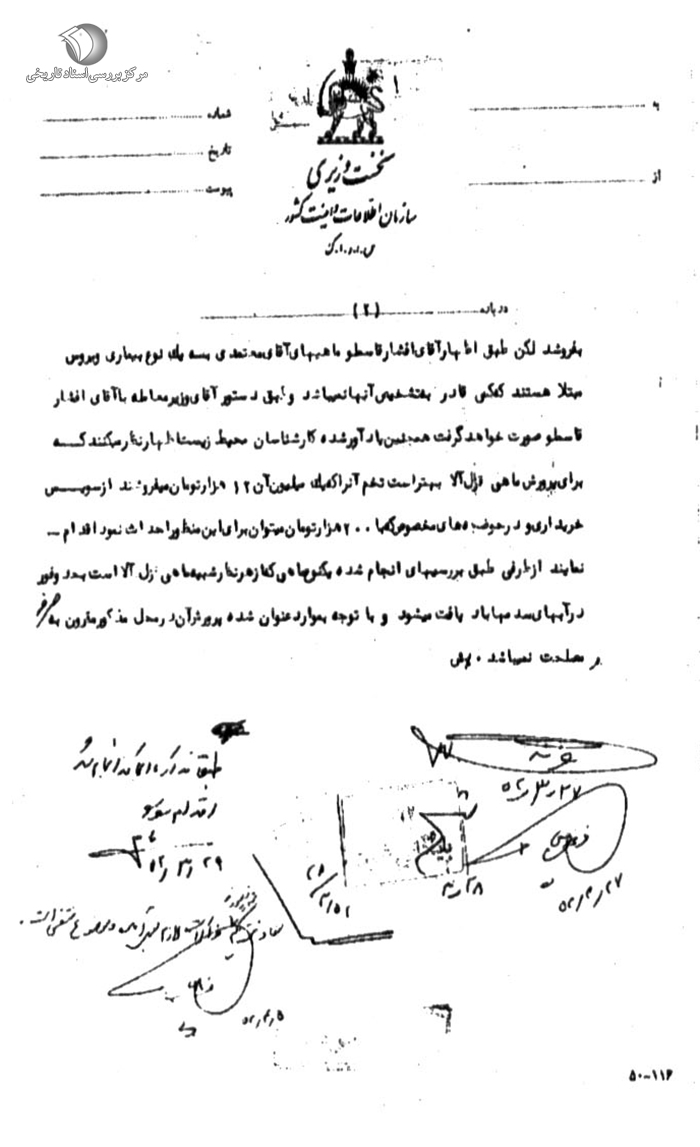 مرکز بررسی اسناد تاریخی
به
شماره
تاریخ
از
پیوست
نخست وزیری
سازمان اطلاعات و امنیت کشور
س.ا.و.ا.ک
درباره (۲)
بفروشد لکن طبق اظهار آقای افشار قاسملو ماهیهای آقای معتمدی بسه یک نوع بیماری ویروس
مبتلا هستند که کسی قادر به تشخیص آنها نمیباشد و طبق دستور آقای وزیر معامله با آقای افشار
قاسملو صورت خواهد گرفت همچنین یادآور شده کارشناسان محیط زیست اظهار نظر میکنند کسه
برای پرورش ماهی قزل آلا بهتر است تخم آنرا که یک میلیون آن ۱۲ هزار تومان میفروشند از سویس
خریداری و در حوضچه های مخصوص که با ۲۰۰ هزار تومان میتوان برای این منظور احداث نمود اقدام ـ
نمایند از طرفی طبق بررسیهای انجام شده یکنوع ماهی که از هر نظر شبیه ماهی قزل آلا است بحد وفور
در آبهای سد مهاباد یافت میشود و با توجه بموارد عنوان شده پرورش آن در محل مذکور مقرون به صرفه
و مصلحت نمیباشد .
۵۲/۳/۲۷
۵۲/۳/۲۹
۳/۲۸
۵۲/۴/۵
۵۰-۱۱۶